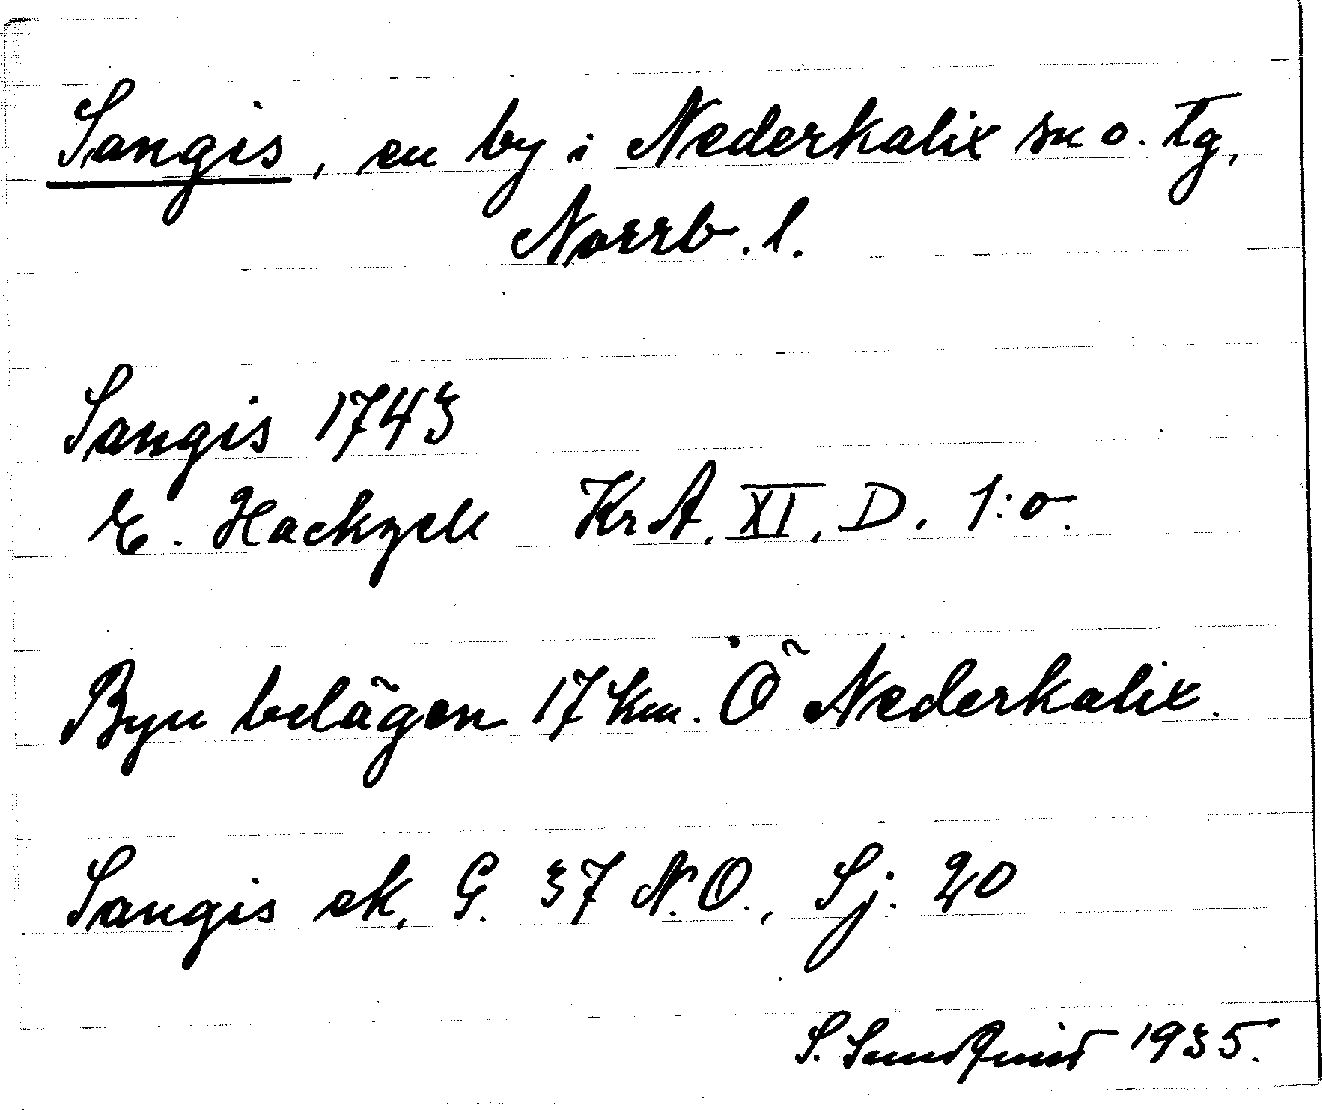 Sangis, en by i Nederkalix sn o. tg,
Norrb. l.
Sangis 1743
E. Hackzell KrA. XI. D. 1:o.
Byn belägen 17 km. Ö Nederkalix.
Sangis ek. G. 37 N.O., Sj. 20
S. Sundquist 1935.